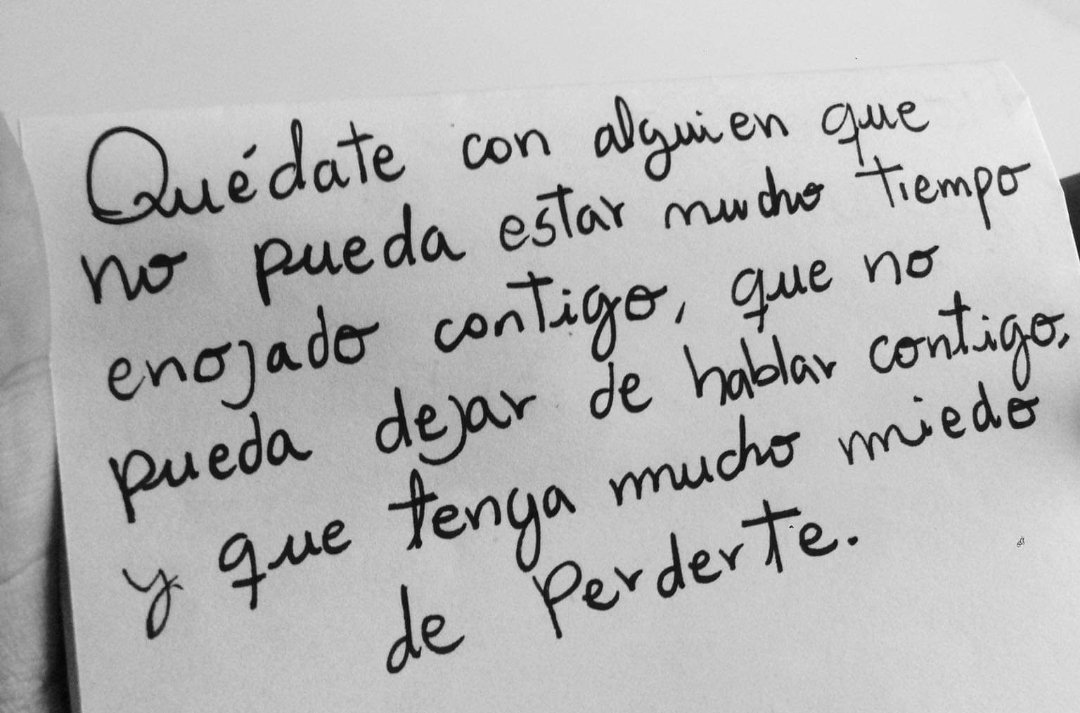 Quédate con alguien que
no pueda estar mucho tiempo
enojado contigo, que no
pueda dejar de hablar contigo,
y que tenga mucho miedo
de Perderte.